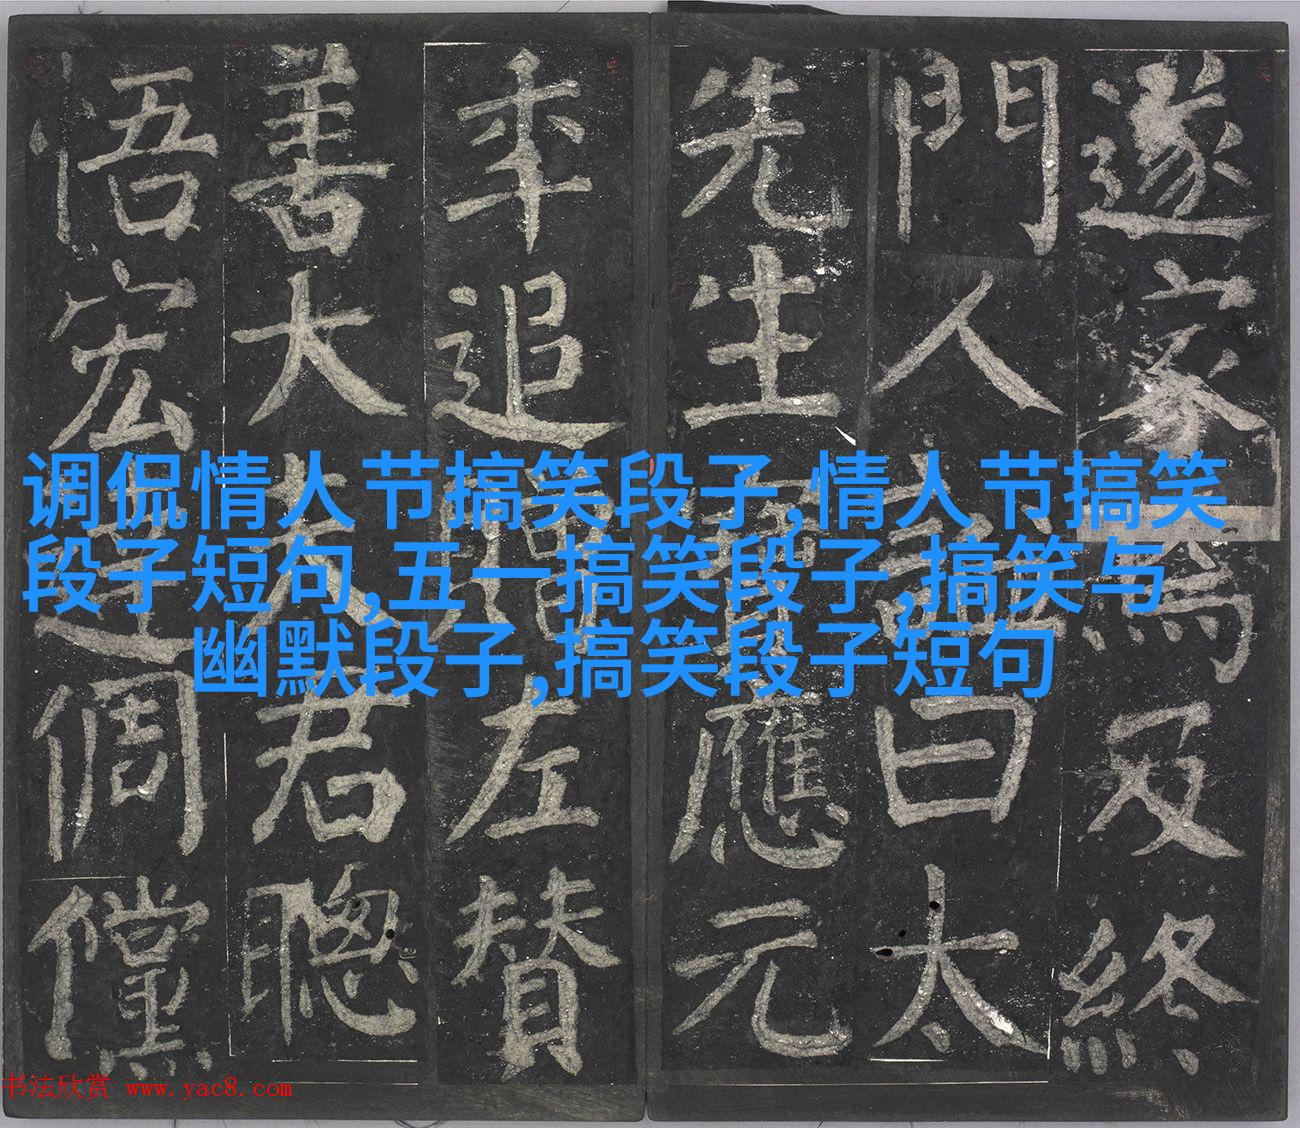 遂家焉及終
門人諡曰太
先生寶應元
年追贈左贊
善大夫君聰
悟宏達倜儻
调侃情人节搞笑段子,情人节搞笑
段子短句,五一搞笑段子,搞笑与
幽默段子,搞笑段子短句
书法欣赏 www.yac8.com